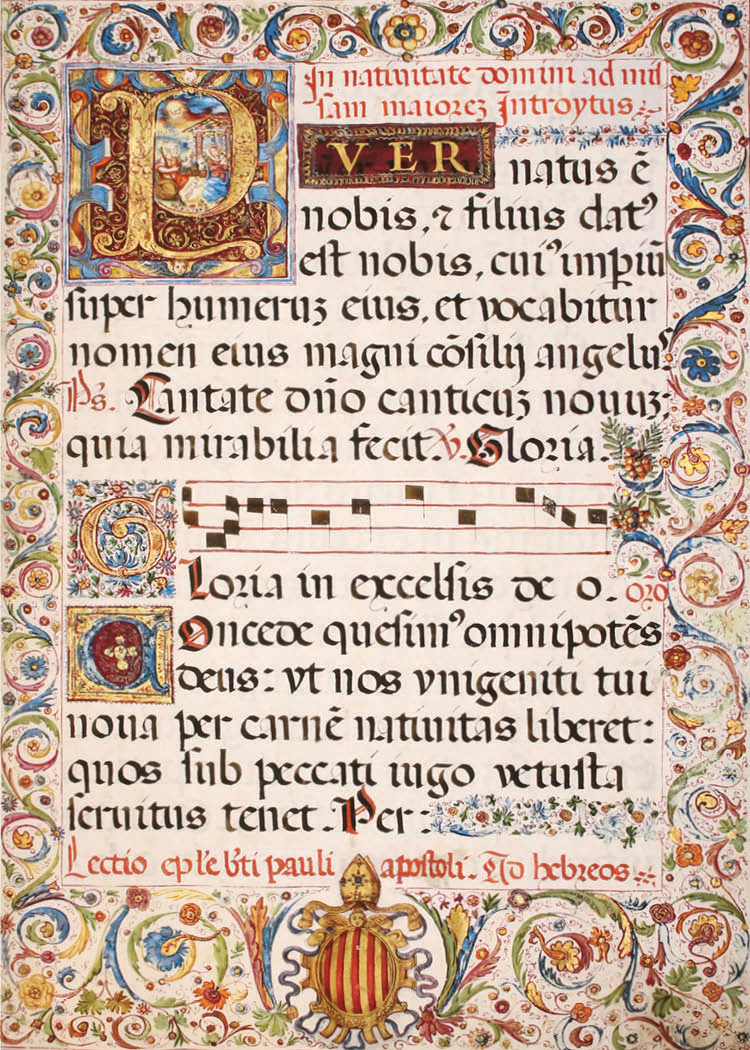 In natiuitate domini ad mis
sam maiorez Introytus
PVER natus ē
nobis, ⁊ filius datꝰ
est nobis, cuiꝰ imꝑiū
super humeruz eius, et vocabitur
nomen eius magni cōsilij angelus
Ps. Cantate dño canticuz nouuz:
quia mirabilia fecit. ℣. Gloria.
GLoria in excelsis de o. oro
COncede quesimꝰ omnipotēs
deus: vt nos vnigeniti tui
noua per carnē natiuitas liberet:
quos sub peccati iugo vetusta
seruitus tenet. Per:
Lectio ep̄le b̄ti pauli apostoli. Ad hebreos